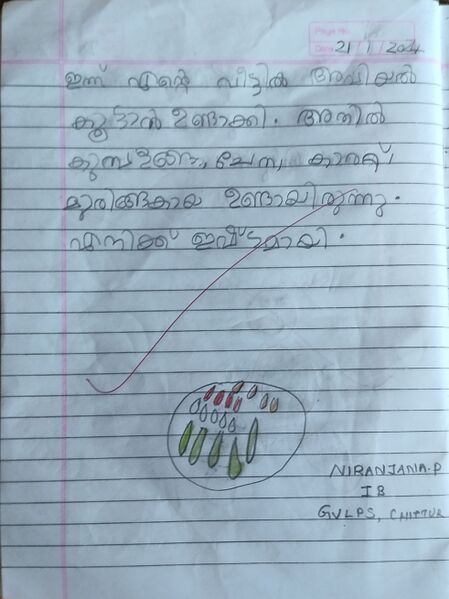 Page No.
Date 21/1/2024
ഇന്ന് എന്റെ വീട്ടിൽ അവിയൽ
കൂട്ടാൻ ഉണ്ടാക്കി. അതിൽ
കുമ്പളങ്ങ, ചേന, കാരറ്റ്,
മുരിങ്ങകായ ഉണ്ടായിരുന്നു.
എനിക്ക് ഇഷ്ടമായി.
NIRANJANA.P
IB
GVLPS, CHITTUR